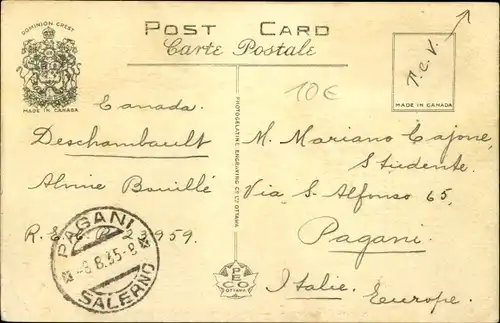 DOMINION CREST
MADE IN CANADA
POST CARD
Carte Postale
T.C.V.
MADE IN CANADA
10€
Canada.
Deschambault
Alvine Bouillé
23959.
PAGANI
-8.8.35-8
SALERNO
PHOTOGELATINE ENGRAVING CO LTD OTTAWA
PECO
OTTAWA
M. Mariano Cajone,
Studente.
Via S. Alfonso 65,
Pagani.
Italie. Europe.